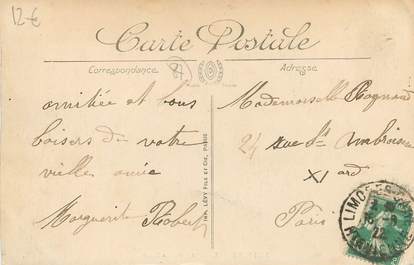 12€
Carte Postale
Correspondance
Adresse
amitiée et bons
baisers de votre
vielles amie
Marguerite Robert
IMP. LÉVY FILS ET CIE, PARIS
Mademoiselle
24 rue St Ambroise
XI ard
Paris
LIMOGES